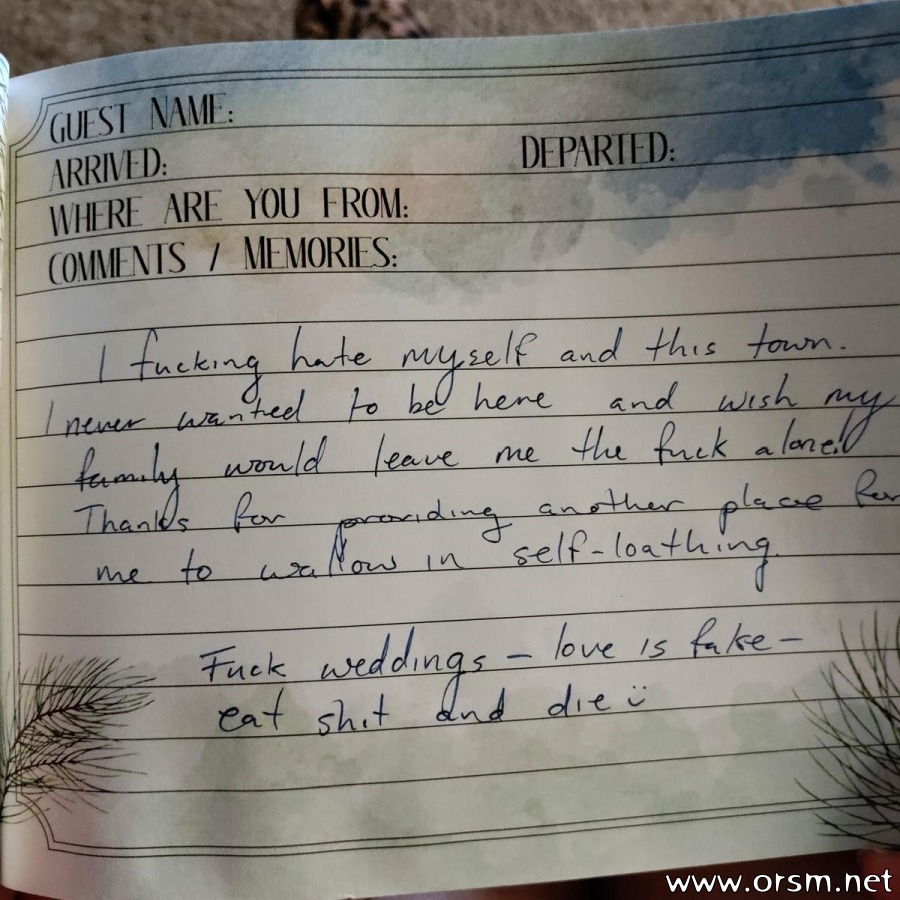 GUEST NAME:
ARRIVED: DEPARTED:
WHERE ARE YOU FROM:
COMMENTS / MEMORIES:
I fucking hate myself and this town.
I never wanted to be here and wish my
family would leave me the fuck alone!
Thanks for providing another place for
me to wallow in self-loathing.
Fuck weddings – love is fake –
eat shit and die ü
www.orsm.net